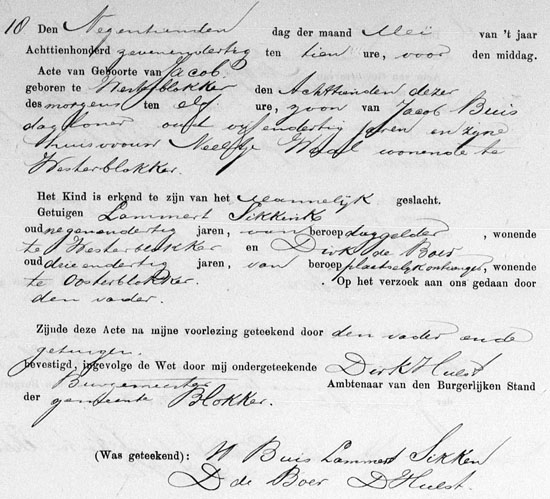 10 Den Negentienden dag der maand Mei van 't jaar
Achttienhonderd zevenendertig ten tien ure, voor den middag.
Acte van Geboorte van Jacob.
geboren te Westerblokker den Achttienden dezer
des morgens ten elf ure, zoon van Jacob Buis
dagloner oud vyf endertig jaren en zyne
huisvrouw Neeltje Waal wonende te
Westerblokker.
Het Kind is erkend te zijn van het mannelyk geslacht.
Getuigen Lammert Sikkink
oud negenendertig jaren, van beroep daggelder, wonende
te Westerblokker en Dirk de Boer
oud drieendertig jaren, van beroep plaatselyk ontvanger, wonende
te Oosterblokker. Op het verzoek aan ons gedaan door
den vader.
Zijnde deze Acte na mijne voorlezing geteekend door den vader ende
getuigen.
bevestigd, ingevolge de Wet door mij ondergeteekende Dirk Hulst
Burgemeester Ambtenaar van den Burgerlijken Stand
der gemeente Blokker.
(Was geteekend): Buis Lammert Sikken
D de Boer D Hulst.